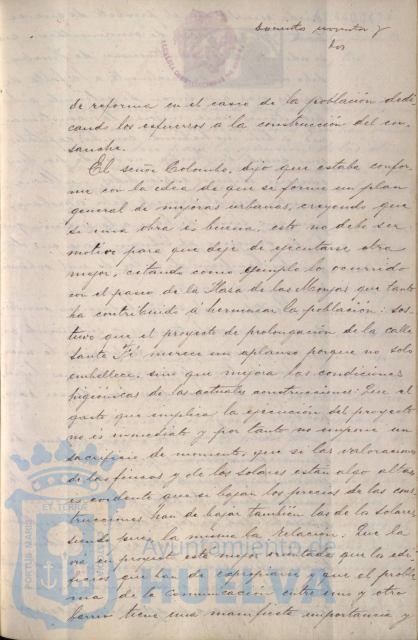 doscientos noventa y
dos
de reforma en el casco de la población dedi
cando los esfuerzos á la construcción del en
sanche.
El señor Colombo, dijo que estaba confor
me con la idea de que se forme un plan
general de mejoras urbanas, creyendo que
si una obra es buena, esto no debe ser
motivo para que deje de ejecutarse otra
mejor, citando como ejemplo lo ocurrido
con el paseo de la Plaza de las Monjas que tanto
ha contribuido á hermosear la población: sos
tuvo que el proyecto de prolongación de la calle
Santa Fé merece un aplauso porque no solo
embellece, sino que mejora las condiciones
higiénicas de las actuales construcciones: Que el
gasto que implica la ejecución del proyecto
no es inmediato y por tanto no impone un
sacrificio de momento, que si las valoraciones
de las fincas y de los solares están algo altas
es evidente que si bajan los precios de las cons
trucciones han de bajar también las de los solares
siendo pues la misma la relación. Que la
via en proyecto esta que los edi
ficios que han de expropiarse y que el proble
ma de la comunicación entre uno y otro
barrio tiene una manifiesta importancia y
PORTUS MARIS ET TERRAE
Ayuntamiento de
HUELVA